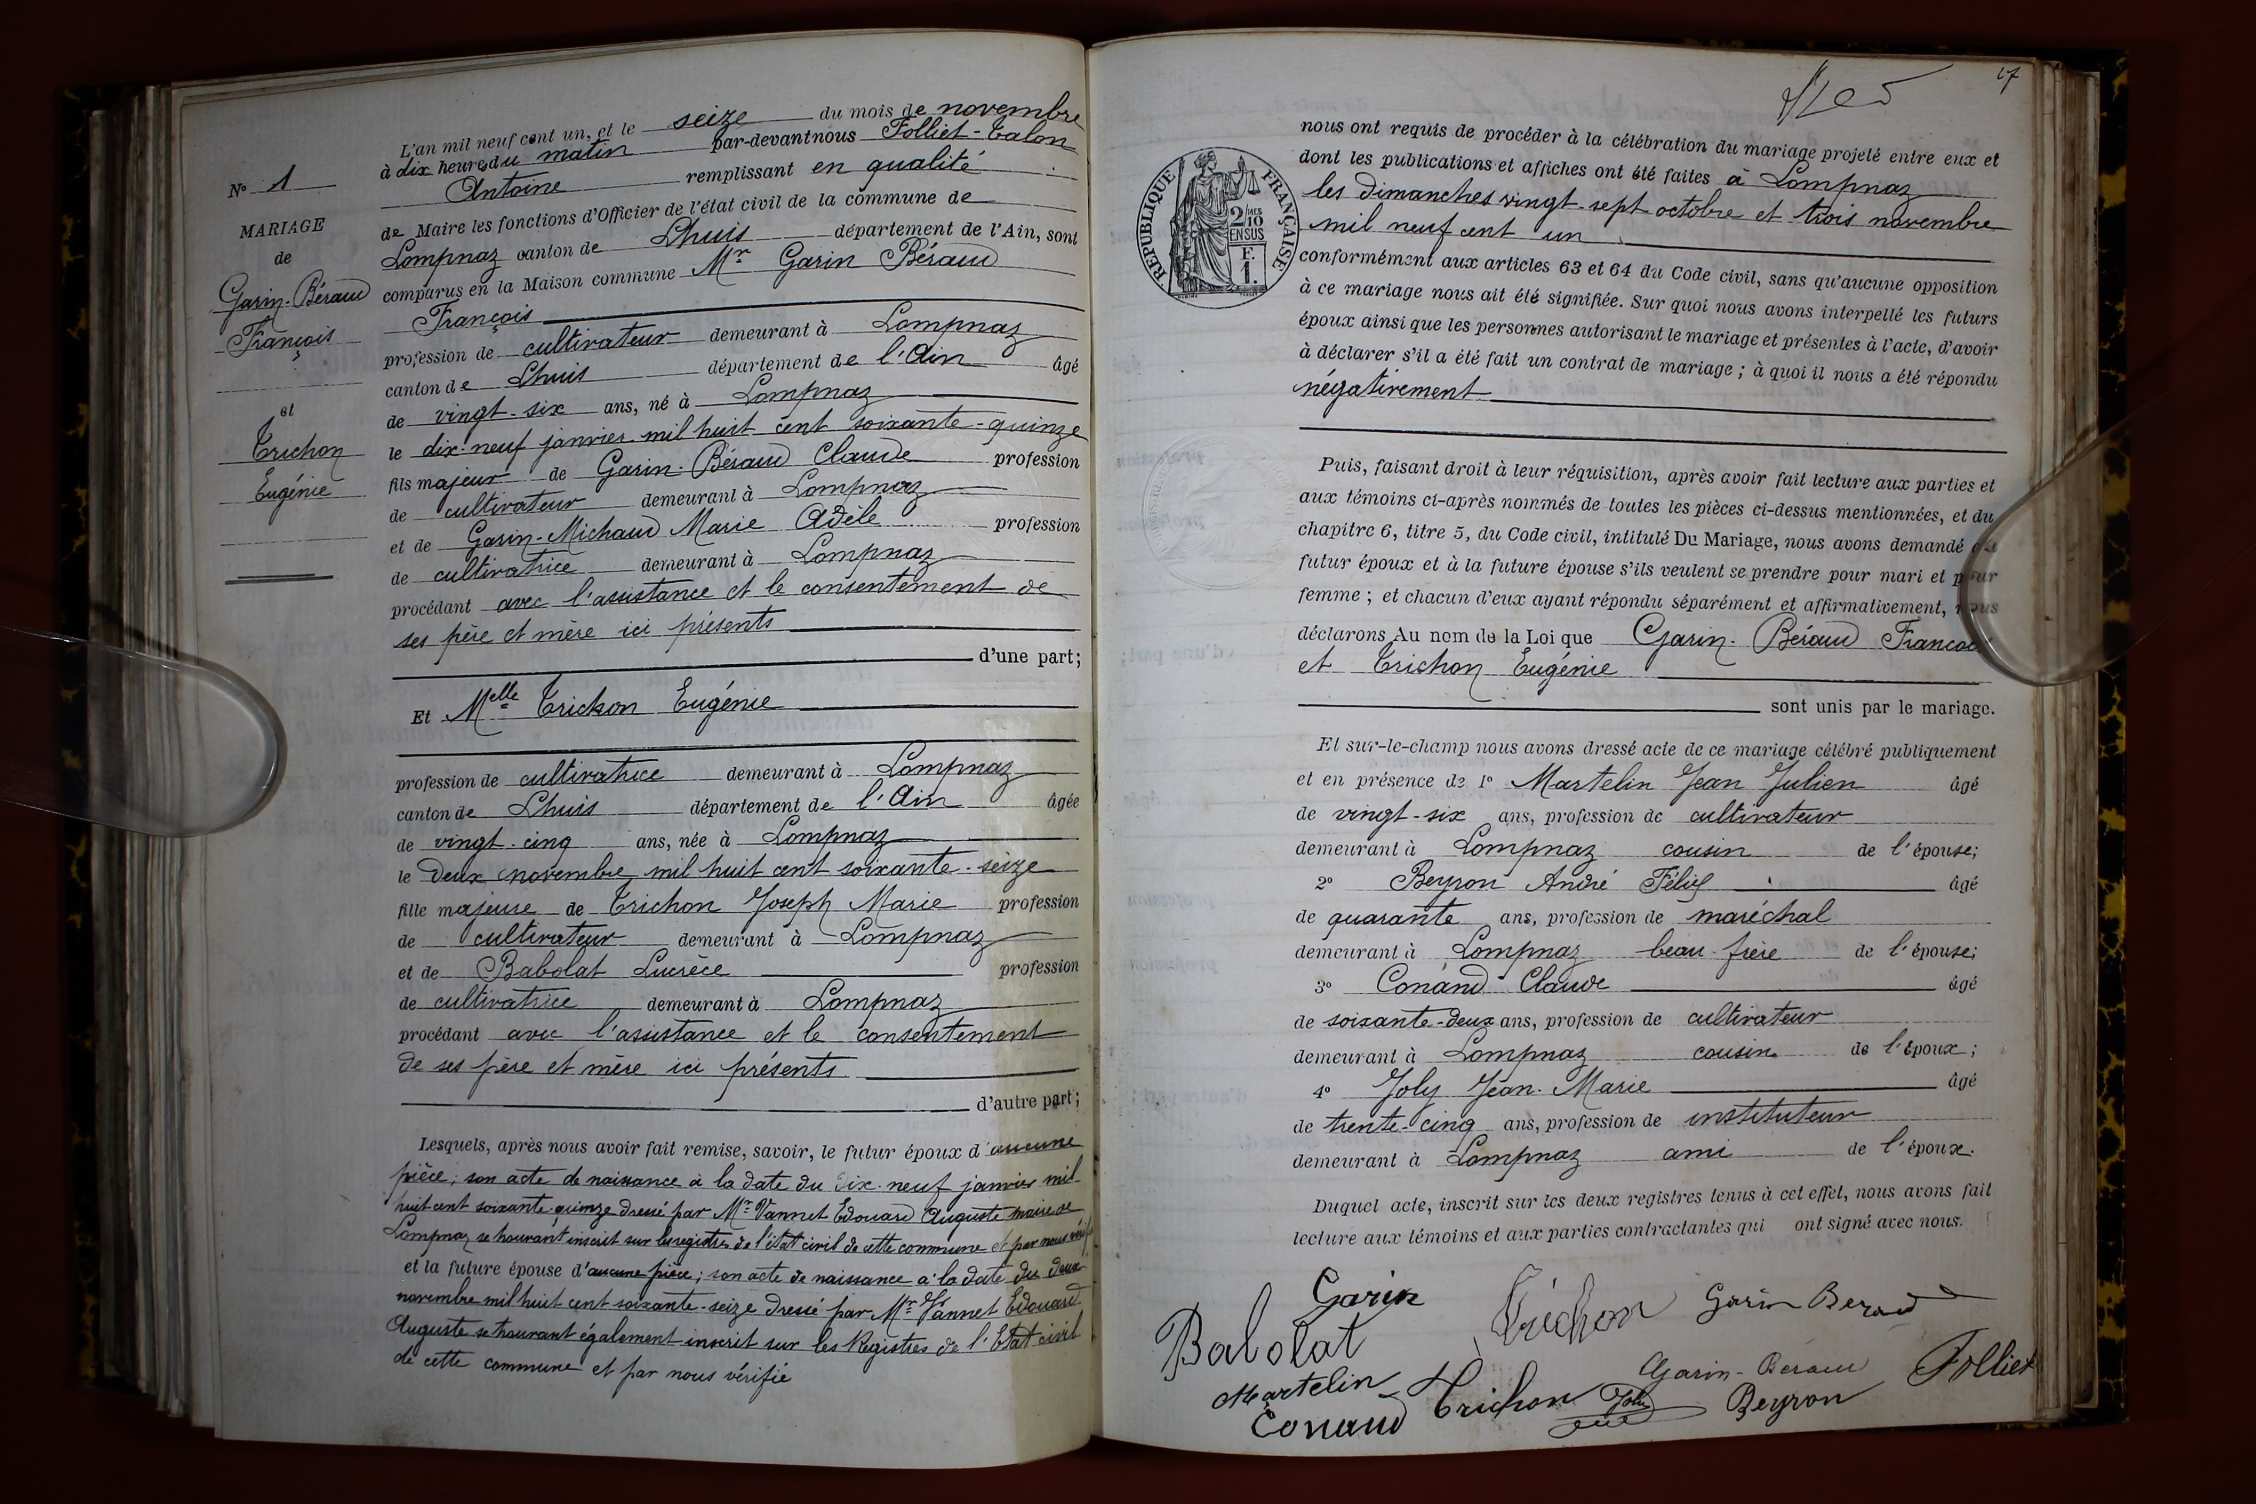 N° 1
MARIAGE
de
Garin-Béraud
François
et
Trichon
Eugénie
L'an mil neuf cent un, et le seize du mois de novembre
à dix heures du matin par-devant nous Folliet-Talon
Antoine remplissant en qualité
de Maire les fonctions d'Officier de l'état civil de la commune de
Lompnaz canton de Lhuis département de l'Ain, sont
comparus en la Maison commune Mr Garin Béraud
François
profession de cultivateur demeurant à Lompnaz
canton de Lhuis département de l'Ain âgé
de vingt-six ans, né à Lompnaz
le dix-neuf janvier mil huit cent soixante-quinze
fils majeur de Garin-Béraud Claude profession
de cultivateur demeurant à Lompnaz
et de Garin-Michaud Marie Adèle profession
de cultivatrice demeurant à Lompnaz
procédant avec l'assistance et le consentement de
ses père et mère ici présents
d'une part;
Et Melle Trichon Eugénie
profession de cultivatrice demeurant à Lompnaz
canton de Lhuis département de l'Ain âgée
de vingt-cinq ans, née à Lompnaz
le deux novembre mil huit cent soixante-seize
fille majeure de Trichon Joseph Marie profession
de cultivateur demeurant à Lompnaz
et de Babolat Lucrèce profession
de cultivatrice demeurant à Lompnaz
procédant avec l'assistance et le consentement
de ses père et mère ici présents
d'autre part;
Lesquels, après nous avoir fait remise, savoir, le futur époux d'aucune
pièce; son acte de naissance à la date du dix-neuf janvier mil
huit cent soixante-quinze dressé par Mr Vannet Edouard Auguste maire de
Lompnaz se trouvant inscrit sur les registres de l'état civil de cette commune et par nous vérifié
et la future épouse d'aucune pièce; son acte de naissance à la date du deux
novembre mil huit cent soixante-seize dressé par Mr Vannet Edouard
Auguste se trouvant également inscrit sur les Registres de l'Etat civil
de cette commune et par nous vérifié
17
RÉPUBLIQUE FRANÇAISE
2/10 EN SUS
F. 1.
nous ont requis de procéder à la célébration du mariage projeté entre eux et
dont les publications et affiches ont été faites à Lompnaz
les dimanches vingt-sept octobre et trois novembre
mil neuf cent un
conformément aux articles 63 et 64 du Code civil, sans qu'aucune opposition
à ce mariage nous ait été signifiée. Sur quoi nous avons interpellé les futurs
époux ainsi que les personnes autorisant le mariage et présentes à l'acte, d'avoir
à déclarer s'il a été fait un contrat de mariage ; à quoi il nous a été répondu
négativement
Puis, faisant droit à leur réquisition, après avoir fait lecture aux parties et
aux témoins ci-après nommés de toutes les pièces ci-dessus mentionnées, et du
chapitre 6, titre 5, du Code civil, intitulé Du Mariage, nous avons demandé au
futur époux et à la future épouse s'ils veulent se prendre pour mari et pour
femme ; et chacun d'eux ayant répondu séparément et affirmativement, nous
déclarons Au nom de la Loi que Garin-Béraud François
et Trichon Eugénie
sont unis par le mariage.
Et sur-le-champ nous avons dressé acte de ce mariage célébré publiquement
et en présence de 1° Martelin Jean Julien âgé
de vingt-six ans, profession de cultivateur
demeurant à Lompnaz cousin de l'épouse;
2° Beyron André Félix âgé
de quarante ans, profession de maréchal
demeurant à Lompnaz beau-frère de l'épouse;
3° Conand Claude âgé
de soixante-deux ans, profession de cultivateur
demeurant à Lompnaz cousin de l'époux;
4° Joly Jean-Marie âgé
de trente-cinq ans, profession de instituteur
demeurant à Lompnaz ami de l'époux.
Duquel acte, inscrit sur les deux registres tenus à cet effet, nous avons fait
lecture aux témoins et aux parties contractantes qui ont signé avec nous.
Garin Trichon Garin Beraud
Babolat
Garin-Béraud Folliet
Martelin Trichon Joly Beyron
Conand